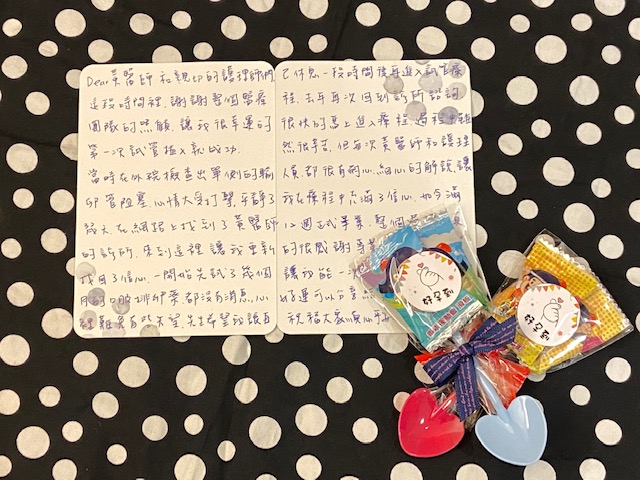 Dear黃醫師 和親切的護理師們
這段時間裡,謝謝整個醫療
團隊的照顧,讓我很幸運的
第一次試管植入就成功.
當時在外院檢查出單側的輸
卵管阻塞,心情大受打擊,
在網路上找到了黃醫師
的診所,來到這裡讓我重新
找回了信心.一開始先試了幾個
月的口服排卵藥都沒有消息,心
裡難免有些失望,先生希望我讓自
己休息一段時間後再進入試管療
程.去年再次回到診所諮詢
很快的馬上進入療程,過程中雖
然很辛苦,但每次黃醫師和護理
人員都很有耐心、細心的解說,讓
我在療程中充滿了信心.如今滿
12週正式畢業,整個
的很感謝黃
讓我能一
好運可以分享
祝福大家順心平
好孕
好孕